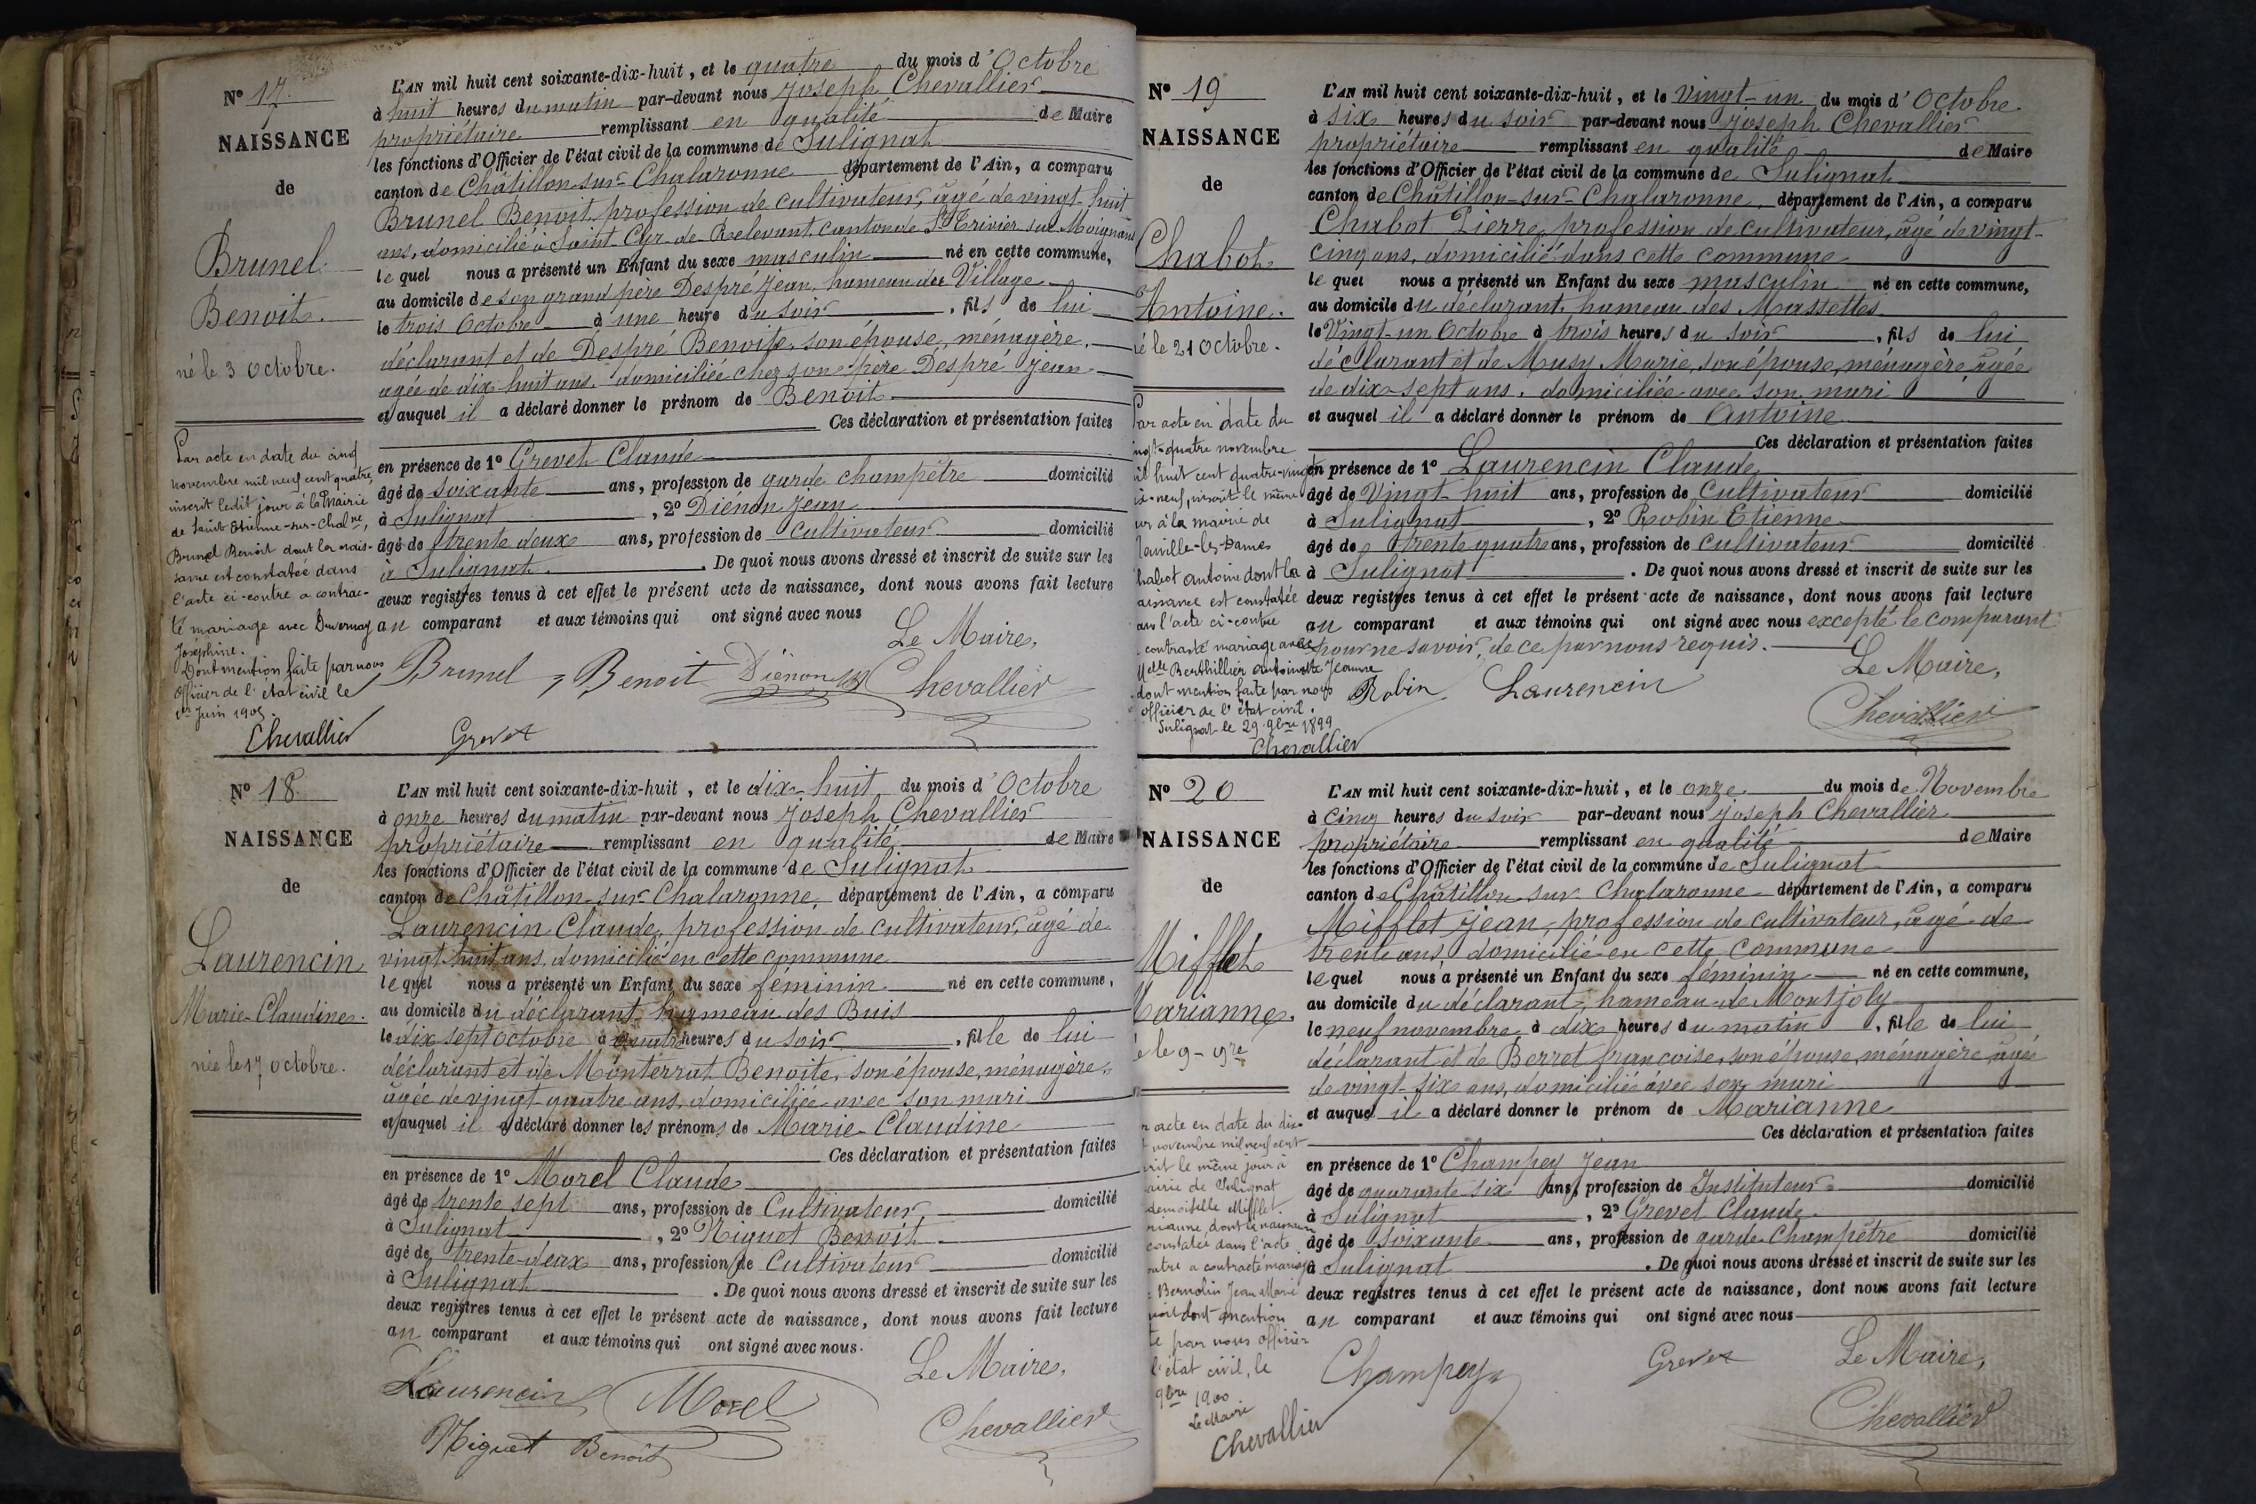 N° 17.
NAISSANCE
de
Brunel
Benoit.
né le 3 octobre.
Par acte en date du cinq
novembre mil neuf cent quatre,
inscrit ledit jour à la Mairie
de Saint Etienne-sur-Chalne,
Brunel Benoit dont la nais-
sance est constatée dans
l'acte ci-contre a contrac-
té mariage avec Duvernay
Joséphine.
Dont mention faite par nous
Officier de l'état civil le
1er Juin 1905.
Chevallier
L'AN mil huit cent soixante-dix-huit, et le quatre du mois d'Octobre
à huit heures du matin par-devant nous Joseph Chevallier
propriétaire remplissant en qualité de Maire
les fonctions d'Officier de l'état civil de la commune de Sulignat
canton de Châtillon-sur-Chalaronne département de l'Ain, a comparu
Brunel Benoit, profession de cultivateur, âgé de vingt-huit
ans, domicilié à Saint-Cyr-de-Relevant, canton de St Trivier sur Moignans
lequel nous a présenté un Enfant du sexe masculin né en cette commune,
au domicile de son grand père Despré Jean, hameau du Village
le trois Octobre à une heure du soir, fils de lui
déclarant et de Despré Benoite, son épouse, ménagère,
agée de dix huit ans, domiciliée chez son père Despré Jean
et auquel il a déclaré donner le prénom de Benoit
Ces déclaration et présentation faites
en présence de 1° Grevet Claude
âgé de soixante ans, profession de garde champêtre domicilié
à Sulignat, 2° Diénon Jean
âgé de trente deux ans, profession de Cultivateur domicilié
à Sulignat. De quoi nous avons dressé et inscrit de suite sur les
deux registres tenus à cet effet le présent acte de naissance, dont nous avons fait lecture
au comparant et aux témoins qui ont signé avec nous
Le Maire,
Brunel Benoit Diénon Chevallier
Grevet
N° 18.
NAISSANCE
de
Laurencin
Marie-Claudine.
née le 17 octobre.
L'AN mil huit cent soixante-dix-huit, et le dix-huit du mois d'Octobre
à onze heures du matin par-devant nous Joseph Chevallier
propriétaire remplissant en qualité de Maire
les fonctions d'Officier de l'état civil de la commune de Sulignat
canton de Châtillon-sur-Chalaronne, département de l'Ain, a comparu
Laurencin Claude, profession de cultivateur, âgé de
vingt huit ans, domicilié en cette commune
lequel nous a présenté un Enfant du sexe féminin né en cette commune,
au domicile du déclarant, hameau des Buis
le dix sept octobre à quatre heures du soir, fille de lui
déclarant et de Monterrat Benoite, son épouse, ménagère,
agée de vingt quatre ans, domiciliée avec son mari
et auquel il a déclaré donner les prénoms de Marie-Claudine
Ces déclaration et présentation faites
en présence de 1° Morel Claude
âgé de trente sept ans, profession de Cultivateur domicilié
à Sulignat, 2° Niguet Benoit
âgé de trente-deux ans, profession de Cultivateur domicilié
à Sulignat. De quoi nous avons dressé et inscrit de suite sur les
deux registres tenus à cet effet le présent acte de naissance, dont nous avons fait lecture
au comparant et aux témoins qui ont signé avec nous.
Le Maire,
Laurencin Morel
Chevallier
Niguet Benoit
N° 19
NAISSANCE
de
Chabot
Antoine.
né le 21 Octobre.
Par acte en date du
quatre novembre
huit cent quatre-vingt
neuf, inscrit le même
à la mairie de
les-Dames
Antoine dont la
est constatée
l'acte ci-contre
contracté mariage avec
Melle Berthillier Antoinette Jeanne
dont mention faite par nous
officier de l'état civil.
Sulignat le 29 9bre 1899
Chevallier
L'AN mil huit cent soixante-dix-huit, et le Vingt-un du mois d'Octobre
à six heures du soir par-devant nous Joseph Chevallier
propriétaire remplissant en qualité de Maire
les fonctions d'Officier de l'état civil de la commune de Sulignat
canton de Châtillon-sur-Chalaronne, département de l'Ain, a comparu
Chabot Pierre, profession de cultivateur, âgé de vingt-
cinq ans, domicilié dans cette commune
lequel nous a présenté un Enfant du sexe masculin né en cette commune,
au domicile du déclarant, hameau des Massettes
le Vingt-un Octobre à trois heures du soir, fils de lui
déclarant et de Musy Marie, son épouse, ménagère, agée
de dix-sept ans, domiciliée avec son mari
et auquel il a déclaré donner le prénom de Antoine
Ces déclaration et présentation faites
en présence de 1° Laurencin Claude
âgé de Vingt-huit ans, profession de Cultivateur domicilié
à Sulignat, 2° Robin Etienne
âgé de trente quatre ans, profession de Cultivateur domicilié
à Sulignat. De quoi nous avons dressé et inscrit de suite sur les
deux registres tenus à cet effet le présent acte de naissance, dont nous avons fait lecture
au comparant et aux témoins qui ont signé avec nous excepté le comparant
pour ne savoir, de ce par nous requis.
Le Maire,
Robin Laurencin
Chevallier
N° 20
NAISSANCE
de
Mifflet
Marianne.
le 9 9bre
acte en date du dix-
novembre mil neuf cent
le même jour à
de Sulignat
demoiselle Mifflet
dont la naissance
constatée dans l'acte
a contracté mariage
Bernolin Jean Marie
dont mention
par nous officier
l'état civil, le
9bre 1900
Le Maire
Chevallier
L'AN mil huit cent soixante-dix-huit, et le onze du mois de Novembre
à cinq heures du soir par-devant nous Joseph Chevallier
propriétaire remplissant en qualité de Maire
les fonctions d'Officier de l'état civil de la commune de Sulignat
canton de Châtillon-sur-Chalaronne département de l'Ain, a comparu
Mifflet Jean, profession de cultivateur, âgé de
trente ans, domicilié en cette commune
lequel nous a présenté un Enfant du sexe féminin né en cette commune,
au domicile du déclarant, hameau de Montjoly
le neuf novembre à dix heures du matin, fille de lui
déclarant et de Berret françoise, son épouse, ménagère, agée
de vingt-six ans, domiciliée avec son mari
et auquel il a déclaré donner le prénom de Marianne
Ces déclaration et présentation faites
en présence de 1° Champey Jean
âgé de quarante six ans, profession de Instituteur domicilié
à Sulignat, 2° Grevet Claude
âgé de soixante ans, profession de garde-Champêtre domicilié
à Sulignat. De quoi nous avons dressé et inscrit de suite sur les
deux registres tenus à cet effet le présent acte de naissance, dont nous avons fait lecture
au comparant et aux témoins qui ont signé avec nous
Champey Grevet Le Maire,
Chevallier